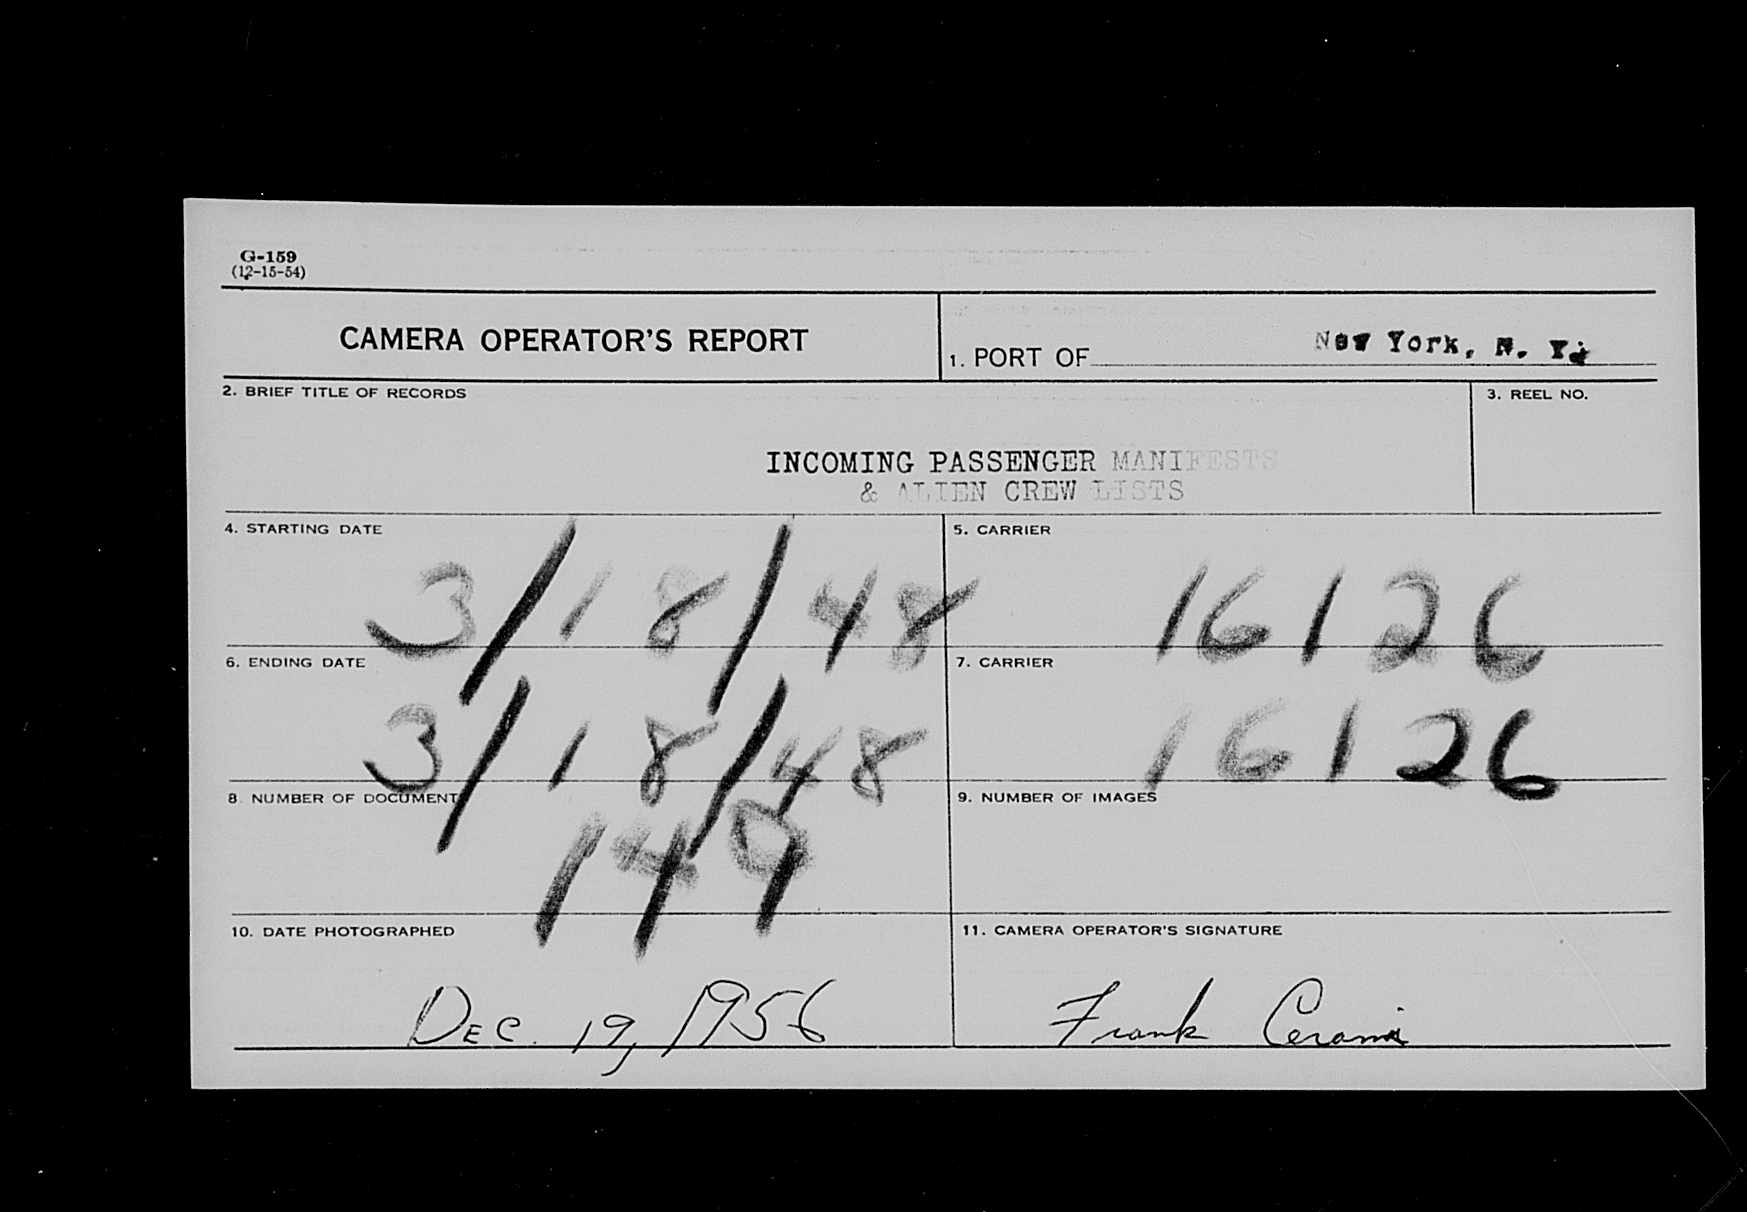 G-159
(12-15-54)
CAMERA OPERATOR'S REPORT
1. PORT OF New York, N. Y.
2. BRIEF TITLE OF RECORDS
3. REEL NO.
INCOMING PASSENGER MANIFESTS
& ALIEN CREW LISTS
4. STARTING DATE
3/18/48
5. CARRIER
16126
6. ENDING DATE
3/18/48
7. CARRIER
16126
8. NUMBER OF DOCUMENT
149
9. NUMBER OF IMAGES
10. DATE PHOTOGRAPHED
DEC. 19, 1956
11. CAMERA OPERATOR'S SIGNATURE
Frank Cerami